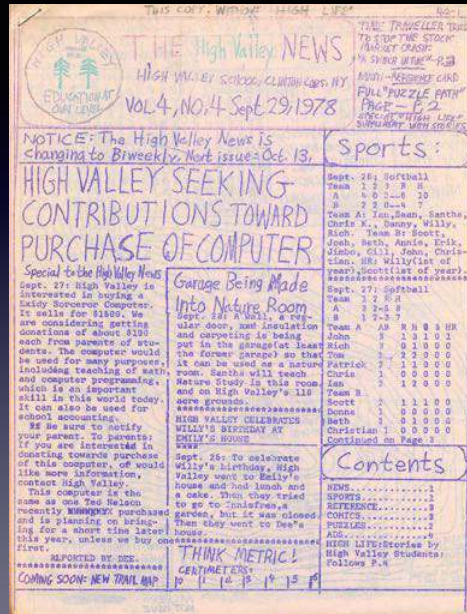 THIS COPY: WITH "HIGH LIFE"
HIGH VALLEY
EDUCATION AT
OWN LEVEL
THE High Valley NEWS,
HIGH VALLEY SCHOOL, CLINTON CORS, NY
VOL 4, NO. 4 Sept. 29, 1978
TIME TRAVELLER TRIES
TO STOP THE STOCK
MARKET CRASH:
FULL "PUZZLE PATH"
PAGE - P. 2
SPECIAL "HIGH LIFE"
SUPPLEMENT WITH STORIES
NOTICE: The High Valley News is
changing to Biweekly, Next issue: Oct. 13,
HIGH VALLEY SEEKING
CONTRIBUTIONS TOWARD
PURCHASE OF COMPUTER
Special to the High Valley News
Sept. 27: High Valley is
interested in buying a
Exidy Sorceror Computer.
It sells for $1500. We
are considering getting
donations of about $100
each from parents of stu-
dents. The computer would
be used for many purposes,
including teaching of math,
and computer programming,
which is an important
skill in this world today.
It can also be used for
school accounting.
Be sure to notify
your parent. To parents:
If you are interested in
donating towards purchase
of this computer, of would
like more information,
contact High Valley.
This computer is the
same as one Ted Nelson
recently purchased
and is planning on bring-
ing for a short time later
this year, unless we buy one
first.
REPORTED BY DEE.
COMING SOON: NEW TRAIL MAP
Garage Being Made
Into Nature Room
Sept. 28: A wall, a reg-
ular door, and insulation
and carpeting is being
put in the garage (at least
the former garage) so that
it can be used as a nature
room. Santha will teach
Nature Study in this room,
and on High Valley's 110
acre grounds.
HIGH VALLEY CELEBRATES
WILLY'S BIRTHDAY AT
EMILY'S HOUSE
Sept. 26: To celebrate
Willy's birthday, High
Valley went to Emily's
house and had lunch and
a cake. Then they tried
to go to Innisfree, a
garden, but it was closed.
Then they went to Dee's
house.
THINK METRIC!
CENTIMETERS:
0 1 2 3 4 5 6
Sports:
Sept. 26: Softball
Team 1 2 3 R H
Team A: Ian, Sean, Santha,
Chris K., Danny, Willy,
Rich. Team B: Scott,
Josh, Beth, Annie, Erik,
Jimbo, Gill, John, Chris-
tian. HR: Willy(1st of
year), Scott(1st of year).
Sept. 27: Softball
Team 1 2 R H
Team A AB R H O S HR
John 3 1 3 1 0 1
Rich 3 0 1 0 0 0
Tom 2 2 2 0 0 0
Patrick 2 1 1 0 0 0
Chris 1 0 0 0 0 0
Ian 1 2 0 0 0
Team B
Scott 2 1 1 1 0 0
Donna 1 0 0 0 0 0
Beth 2 0 1 0 0 0
Christian 1 0 0 0 0 0
Continued on Page 3
Contents
NEWS.............1
SPORTS...........1
REFERENCE........2
COMICS...........3
PUZZLES..........2
ADS..............4
HIGH LIFE: Stories by
High Valley Students:
Follows P.4